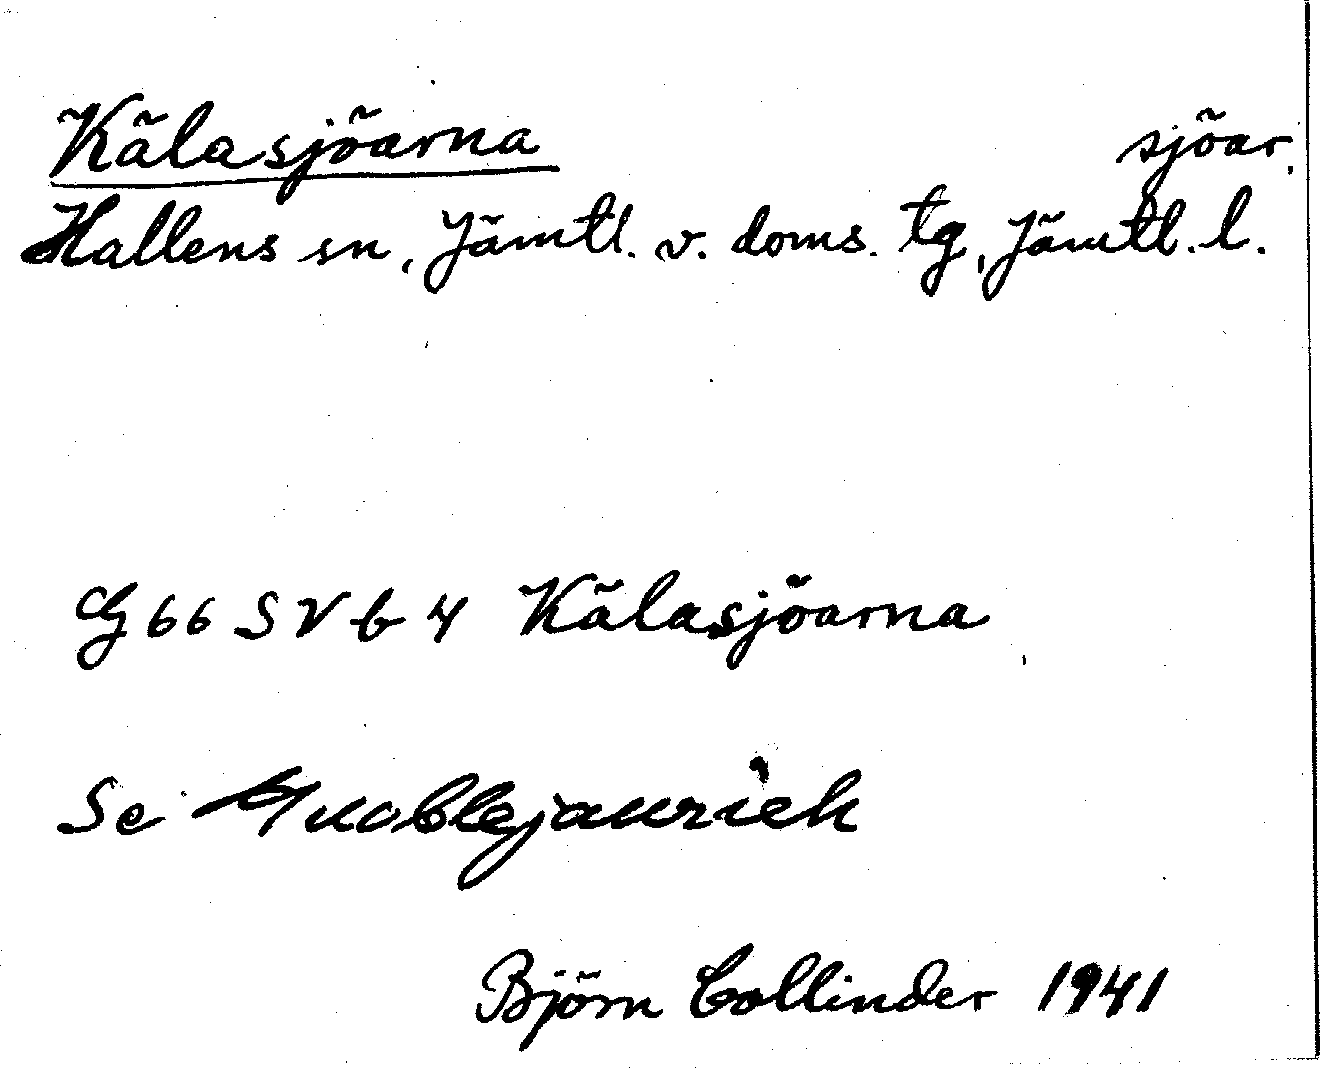 Kälasjöarna sjöar.
Hallens sn, Jämtl. v. doms. tg, Jämtl. l.
G 66 S V b 4 Kälasjöarna
Se
Björn Collinder 1941